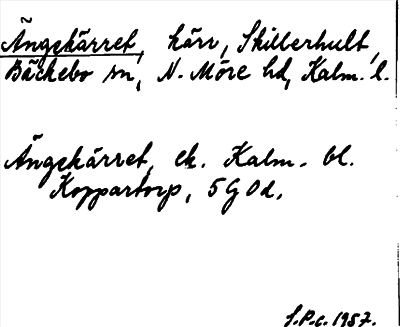 Ängekärret, kärr, Skillerhult,
Bäckebo sn, N. Möre hd, Kalm. l.
Ängekärret, ek. Kalm. bl.
Koppartorp, 5 G 0d.
S.P-c. 1957.